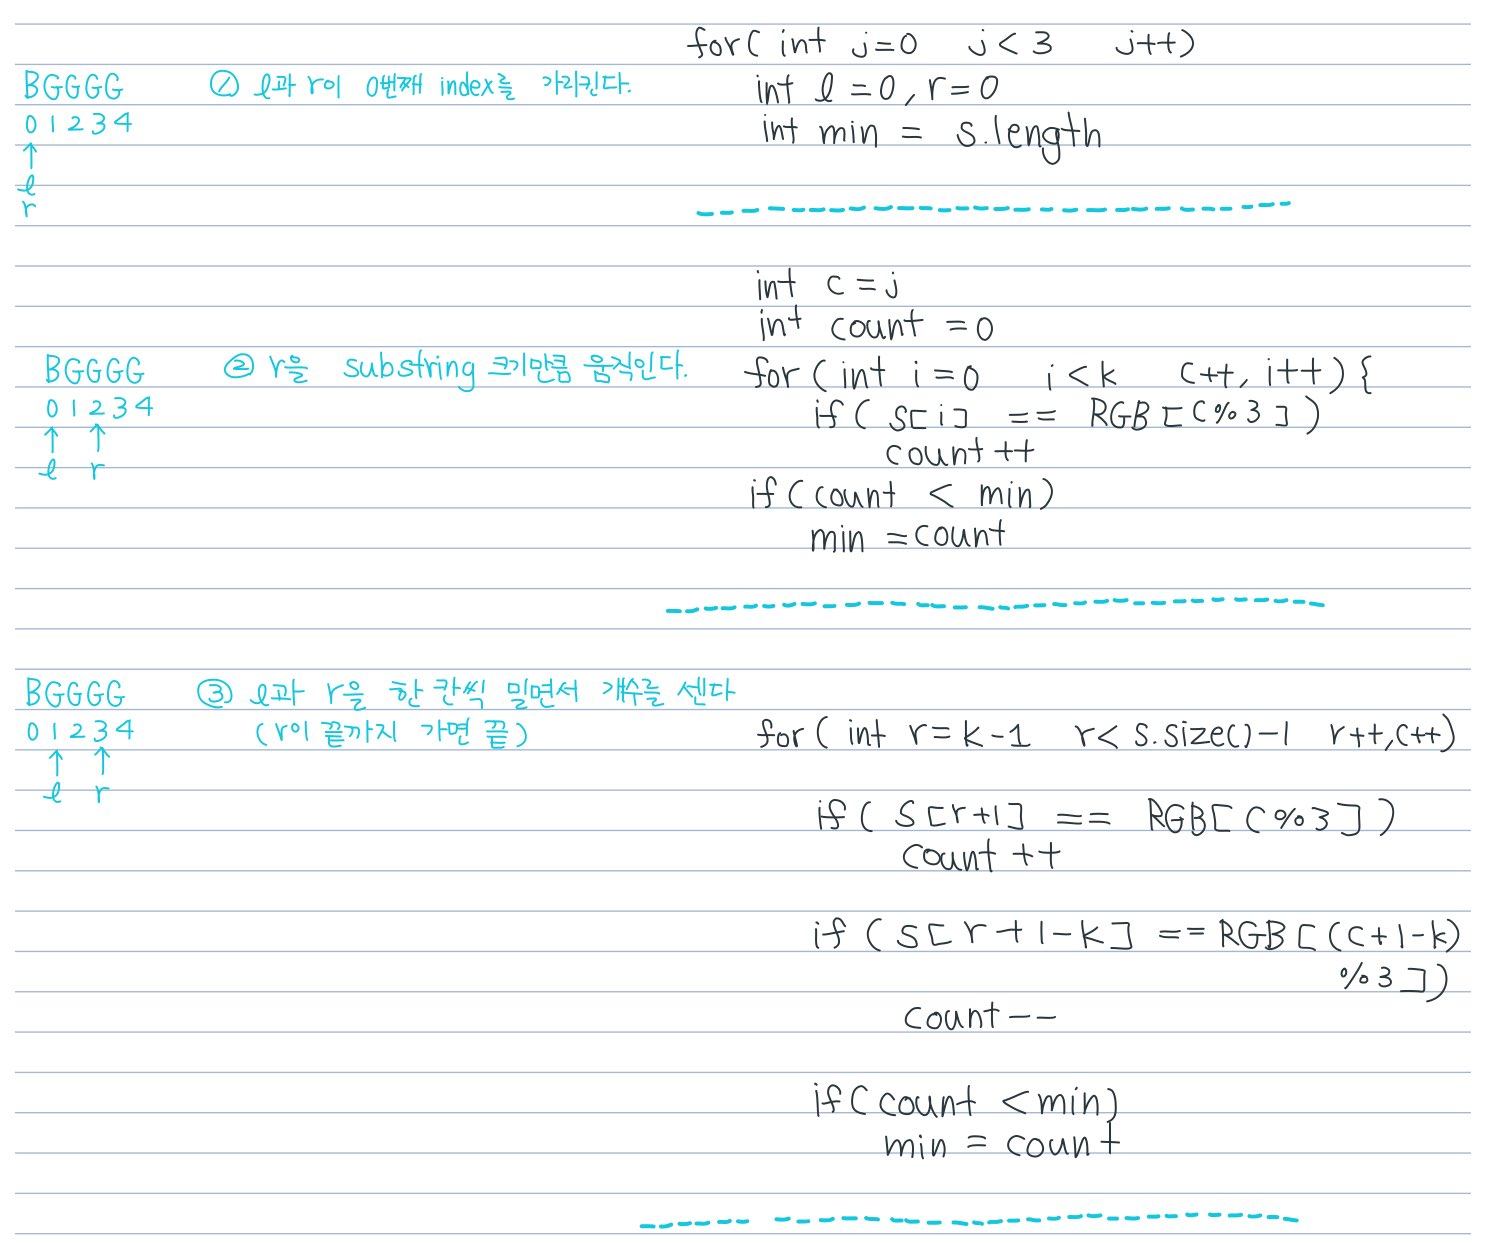 for( int j=0 j<3 j++)
BGGGG ① l과 r이 0번째 index를 가리킨다.
int l =0, r=0
0 1 2 3 4
int min = s.length
↑
l
r
int c =j
int count =0
BGGGG ② r을 substring 크기만큼 움직인다.
for (int i=0 i<k c++, i++) {
0 1 2 3 4
if( s[i] == RGB[c%3])
↑ ↑
l r
count ++
if(count < min)
min =count
BGGGG ③ l과 r을 한 칸씩 밀면서 개수를 센다
0 1 2 3 4 (r이 끝까지 가면 끝)
for( int r=k-1 r< s.size()-1 r++,c++)
↑ ↑
l r
if( s[r+1] == RGB[c%3])
count ++
if (s[r+1-k] == RGB[(c+1-k)
%3])
count--
if(count <min)
min = count